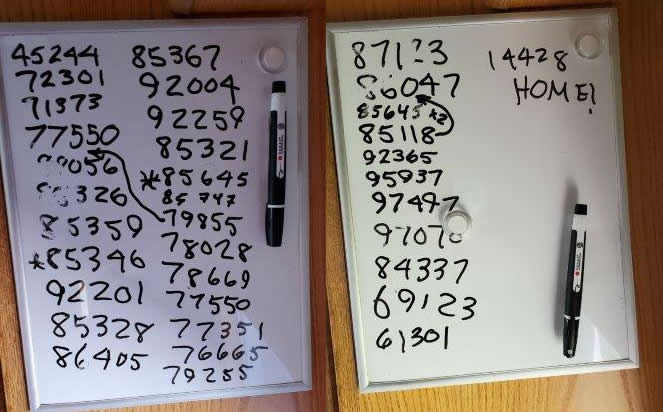 45244
72301
71373
77550
85359
*85346
92201
85328
86405
85367
92004
92259
85321
*85645
85747
79855
78028
78669
77550
77351
76665
79255
87123
86047
85645 x2
85118
92365
95937
97497
84337
69123
61301
14428
HOME!